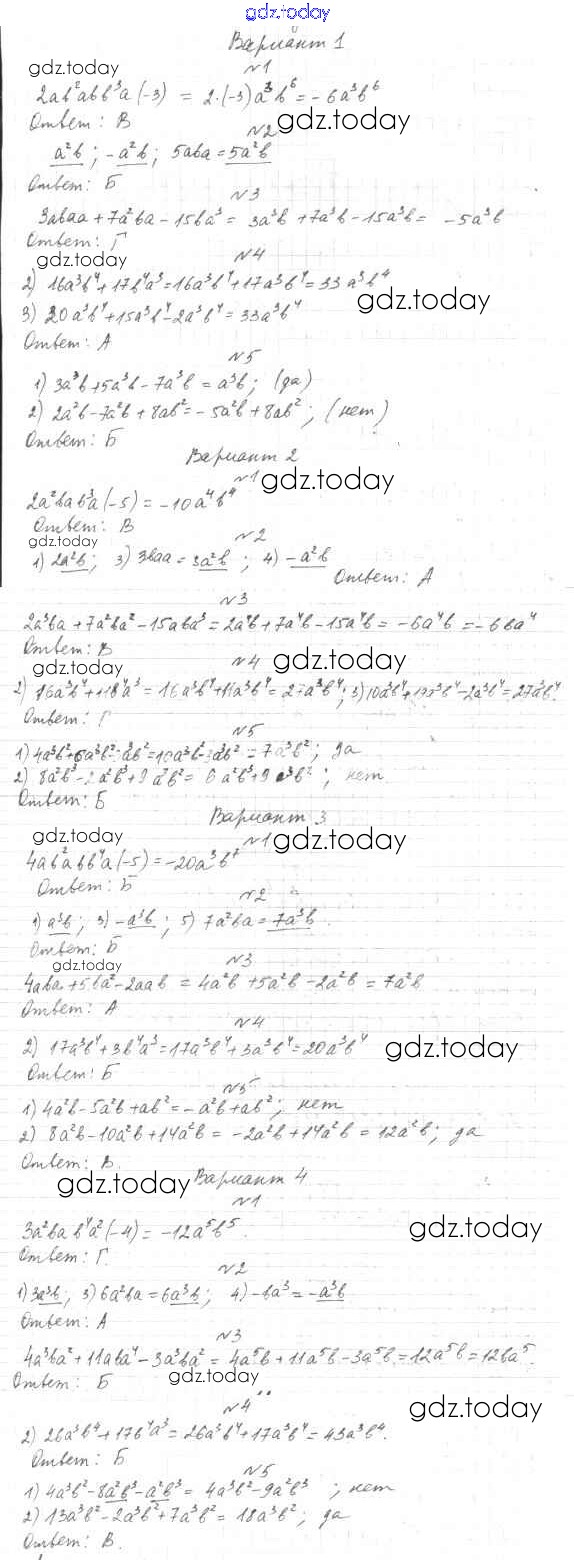 gdz.today
Вариант 1
№1
gdz.today
2ab²abb³a(-3) = 2·(-3)a³b⁶ = -6a³b⁶
Ответ: В
№2
gdz.today
a²b; -a²b; 5aba = 5a²b
Ответ: Б
№3
3abaa + 7a²ba - 15ba³ = 3a³b + 7a³b - 15a³b = -5a³b
Ответ: Г
gdz.today
№4
2) 16a³b⁴ + 17b⁴a³ = 16a³b⁴ + 17a³b⁴ = 33a³b⁴
gdz.today
3) 20a³b⁴ + 15a³b⁴ - 2a³b⁴ = 33a³b⁴
Ответ: А
№5
1) 3a³b + 5a³b - 7a³b = a³b; (да)
2) 2a²b - 7a²b + 8ab² = -5a²b + 8ab²; (нет)
Ответ: Б
Вариант 2
№1
gdz.today
2a²bab³a(-5) = -10a⁴b⁴
Ответ: В
gdz.today
№2
1) 2a²b; 3) 3baa = 3a²b; 4) -a²b
Ответ: А
№3
2a³ba + 7a²ba² - 15aba³ = 2a⁴b + 7a⁴b - 15a⁴b = -6a⁴b = -6ba⁴
Ответ: В
gdz.today
№4
gdz.today
2) 16a³b⁴ + 11b⁴a³ = 16a³b⁴ + 11a³b⁴ = 27a³b⁴; 3) 10a³b⁴ + 19a³b⁴ - 2a³b⁴ = 27a³b⁴.
Ответ: Г
№5
1) 4a³b² + 6a³b² - 3a³b² = 10a³b² - 3a³b² = 7a³b²; да
2) 8a²b³ - 2a²b³ + 9a³b² = 6a²b³ + 9a³b²; нет
Ответ: Б
Вариант 3
gdz.today
№1
gdz.today
4ab²abb⁴a(-5) = -20a³b⁷
Ответ: Б
№2
1) a³b; 3) -a³b; 5) 7a²ba = 7a³b.
Ответ: Б
gdz.today
№3
4aba + 5ba² - 2aab = 4a²b + 5a²b - 2a²b = 7a²b
Ответ: А
№4
2) 17a³b⁴ + 3b⁴a³ = 17a³b⁴ + 3a³b⁴ = 20a³b⁴
gdz.today
Ответ: Б
№5
1) 4a²b - 5a²b + ab² = -a²b + ab²; нет
2) 8a²b - 10a²b + 14a²b = -2a²b + 14a²b = 12a²b; да
Ответ: В.
gdz.today
Вариант 4
№1
3a²bab⁴a²(-4) = -12a⁵b⁵.
gdz.today
Ответ: Г.
№2
1) 3a³b; 3) 6a²ba = 6a³b; 4) -ba³ = -a³b
Ответ: А
№3
4a³ba² + 11aba⁴ - 3a³ba² = 4a⁵b + 11a⁵b - 3a⁵b = 12a⁵b = 12ba⁵.
gdz.today
Ответ: Б
№4
gdz.today
2) 26a³b⁴ + 17b⁴a³ = 26a³b⁴ + 17a³b⁴ = 43a³b⁴.
Ответ: Б
№5
1) 4a³b² - 8a²b³ - a²b³ = 4a³b² - 9a²b³; нет
2) 13a³b² - 2a³b² + 7a³b² = 18a³b²; да
Ответ: В.